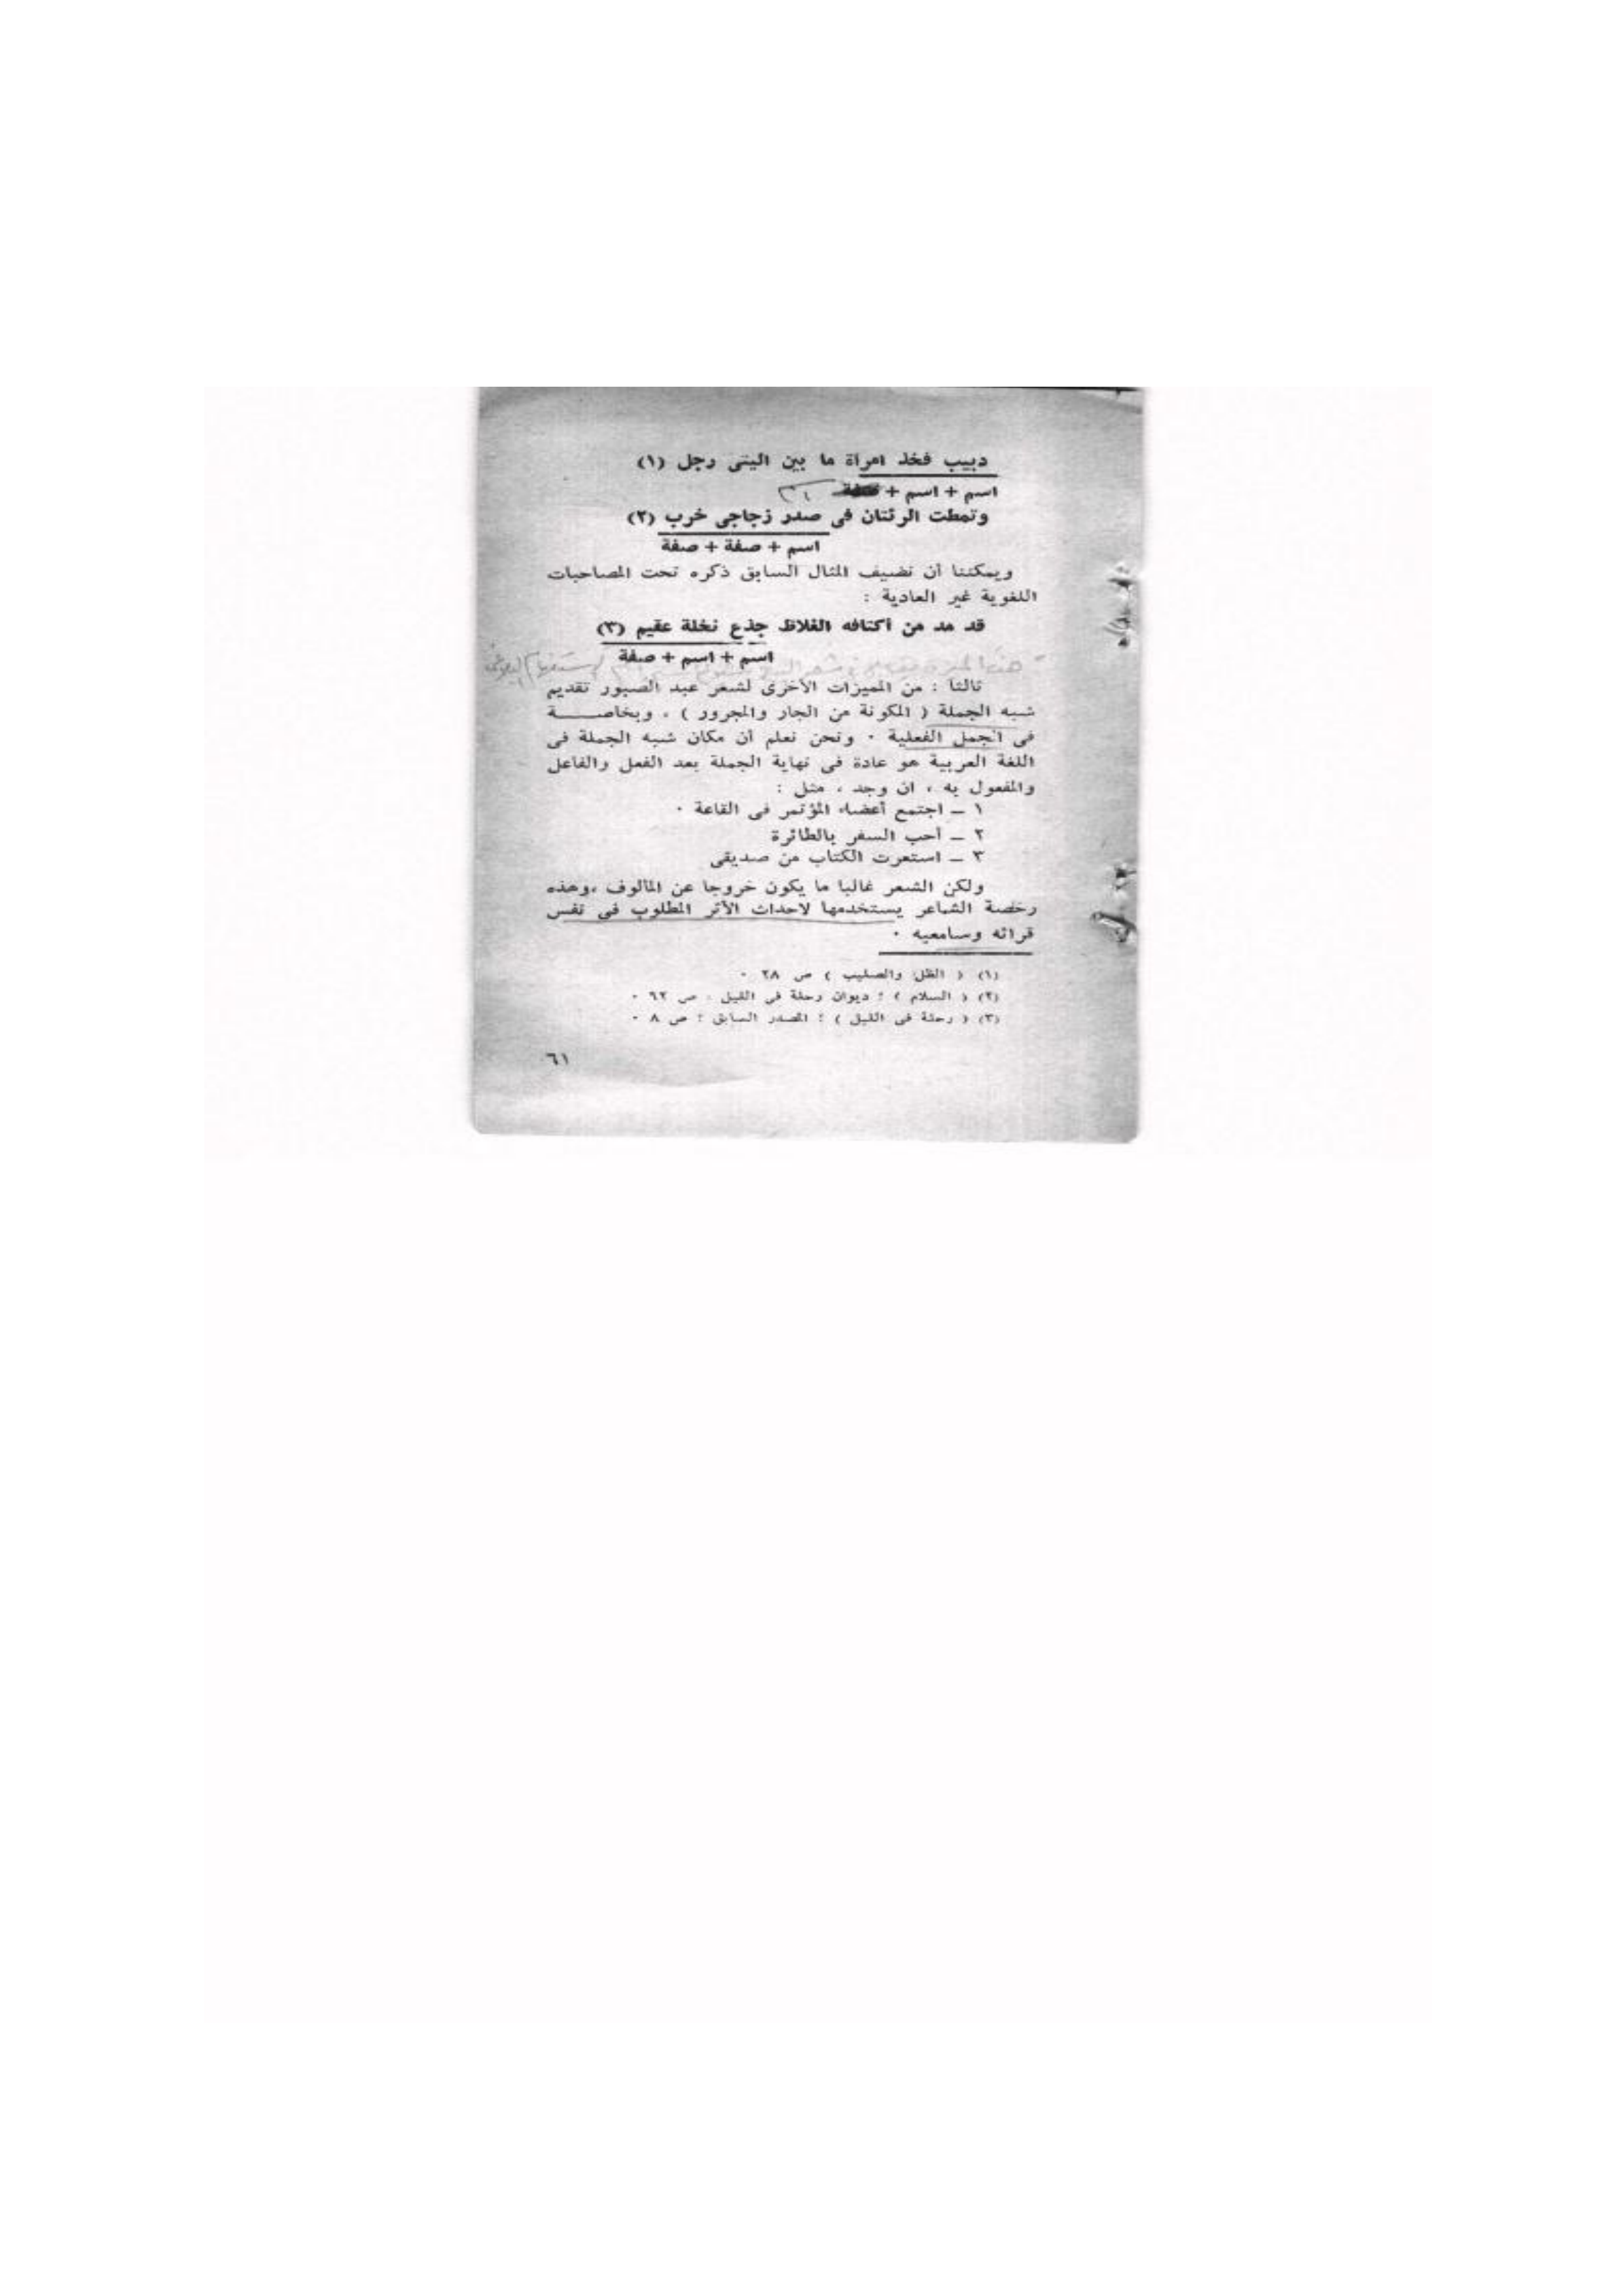 دبيب فخذ امرأة ما بين اليتى رجل (١)
اسم + اسم +
وتمطت الرئتان فى صدر زجاجى خرب (٢)
اسم + صفة + صفة
ويمكننا أن نضيف المثال السابق ذكره تحت المصاحبات
اللغوية غير العادية :
قد مد من أكتافه الغلاظ جذع نخلة عقيم (٣)
اسم + اسم + صفة
ثالثا : من المميزات الأخرى لشعر عبد الصبور تقديم
شبه الجملة ( المكونة من الجار والمجرور ) ، وبخاصـــــة
فى الجمل الفعلية ٠ ونحن نعلم أن مكان شبه الجملة فى
اللغة العربية هو عادة فى نهاية الجملة بعد الفعل والفاعل
والمفعول به ، ان وجد ، مثل :
١ ــ اجتمع أعضاء المؤتمر فى القاعة ٠
٢ ــ أحب السفر بالطائرة
٣ ــ استعرت الكتاب من صديقى
ولكن الشعر غالبا ما يكون خروجا عن المألوف ،وهذه
رخصة الشاعر يستخدمها لاحداث الأثر المطلوب فى نفس
قرائه وسامعيه ٠
(١) ( الظل والصليب ) ص ٢٨ ٠
(٢) ( السلام ) ؛ ديوان رحلة فى الليل ، ص ٦٢ ٠
(٣) ( رحلة فى الليل ) ؛ المصدر السابق ؛ ص ٨ ٠
٦١